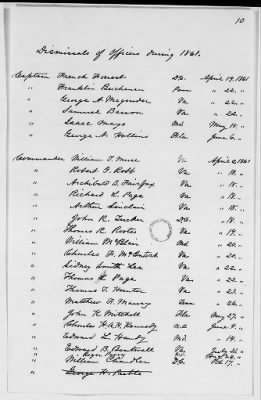 10
Dismissals of Officers during 1861.
Captain French Forrest D.C. April 19, 1861
" Franklin Buchanan Penn " 22, "
" George A. Magruder Va " 22, "
" Samuel Barron Va " 22, "
" Isaac Mayo Md May 18, "
" George N. Hollins June 6, "
Commander William T. Muse April 2, 1861
" Robert G. Robb Va " 18, "
" Archibald B. Fairfax Va " 18, "
" Richard L. Page Va " 18, "
" Arthur Sinclair Va " 18, "
" John R. Tucker D.C. " 18, "
" Thomas R. Rootes Va " 19, "
" William McBlair Md " 20, "
" Charles F. McIntosh Va " 20, "
" Sidney Smith Lee Va " 22, "
" Thomas J. Page Va " 22, "
" Thomas T. Hunter Va " 23, "
" Matthew F. Maury Tenn " 26, "
" John K. Mitchell Fla May 27, "
" Charles H. A. H. Kennedy N.C. June 8, "
" Edward L. Handy Md " 14, "
" Edward B. Boutwell Va July
" Roger Perry Md
" William Chandler D.C. Feb 17, "
" George H. Preble